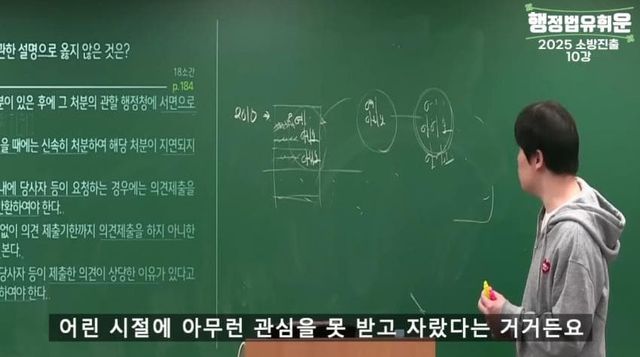 행정법유휘운
2025 소방진출
10강
관한 설명으로 옳지 않은 것은?
18소간
p.184
분이 있은 후에 그 처분의 관할 행정청에 서면으로
을 때에는 신속히 처분하여 해당 처분이 지연되지
내에 당사자 등이 요청하는 경우에는 의견제출을
반환하여야 한다.
없이 의견 제출기한까지 의견제출을 하지 아니한
본다.
당사자 등이 제출한 의견이 상당한 이유가 있다고
하여야 한다.
2010 →
어린 시절에 아무런 관심을 못 받고 자랐다는 거거든요